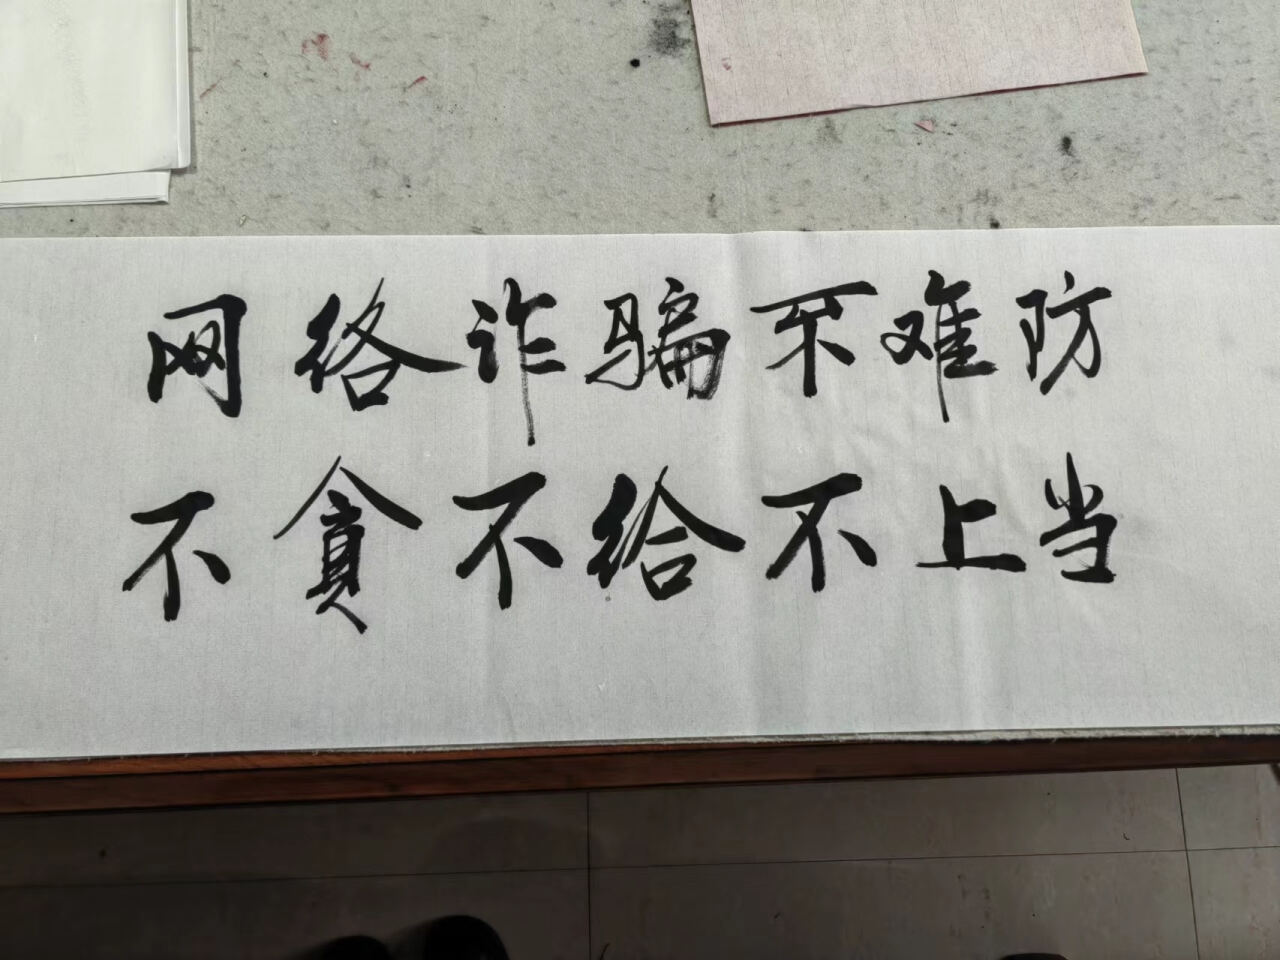 网络诈骗不难防
不贪不给不上当